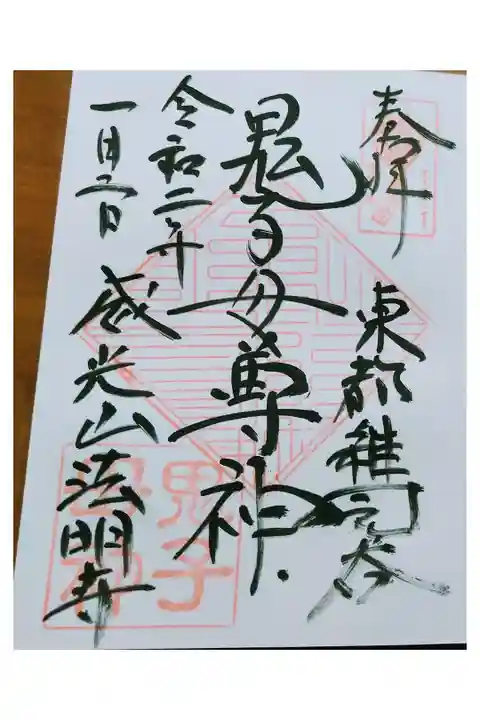 奉拝
東都雑司谷
鬼子母尊神
令和二年
一月三日
威光山法明寺
鬼子
母神